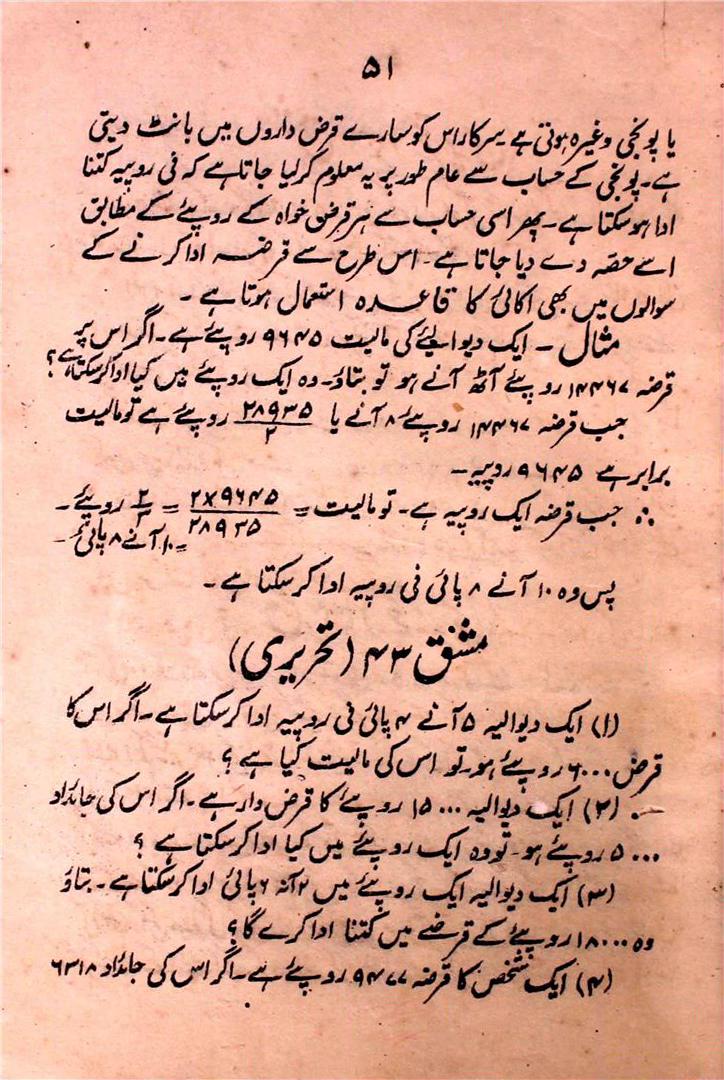 ۵۱
یا پونجی وغیرہ ہوتی ہے سرکار اس کو سارے قرض داروں میں بانٹ دیتی
ہے۔ پونجی کے حساب سے عام طور پر یہ معلوم کر لیا جاتا ہے کہ فی روپیہ کتنا
ادا ہو سکتا ہے۔ پھر اسی حساب سے ہر قرض خواہ کے روپیئے کے مطابق
اسے حصہ دے دیا جاتا ہے۔ اس طرح سے قرضہ ادا کرنے کے
سوالوں میں بھی اکائی کا قاعدہ استعمال ہوتا ہے ۔
مثال ۔ ایک دیوالیے کی مالیت ۹۶۴۵ روپیئے ہے۔ اگر اس پر
قرضہ ۱۴۴۶۷ روپیئے آٹھ آنے ہو تو بتاؤ۔ وہ ایک روپیئے میں کیا ادا کر سکتا ہے؟
جب قرضہ ۱۴۴۶۷ روپیئے ۸ آنے یا ۲۸۹۳۵/۲ روپیئے ہے تو مالیت
برابر ہے ۹۶۴۵ روپیہ ۔
∴ جب قرضہ ایک روپیہ ہے۔ تو مالیت = ۲×۹۶۴۵/۲۸۹۳۵ = ۲/۳ روپیئے ۔
=۱۰ آنے ۸ پائی ۔
پس وہ ۱۰ آنے ۸ پائی فی روپیہ ادا کر سکتا ہے ۔
مشق ۴۳ (تحریری)
(۱) ایک دیوالیہ ۵ آنے ۴ پائی فی روپیہ ادا کر سکتا ہے۔ اگر اس کا
قرض ۶۰۰۰ روپیئے ہو۔ تو اس کی مالیت کیا ہے ؟
(۲) ایک دیوالیہ ۱۵۰۰۰ روپیئے کا قرض دار ہے۔ اگر اس کی جائداد
۵۰۰۰ روپیئے ہو۔ تو وہ ایک روپیئے میں کیا ادا کر سکتا ہے ؟
(۳) ایک دیوالیہ ایک روپیئے میں ۲ آنہ ۶ پائی ادا کر سکتا ہے۔ بتاؤ
وہ ۱۸۰۰۰ روپیئے کے قرضے میں کتنا ادا کرے گا؟
(۴) ایک شخص کا قرضہ ۹۴۷۷ روپیئے ہے۔ اگر اس کی جائداد ۶۳۱۸